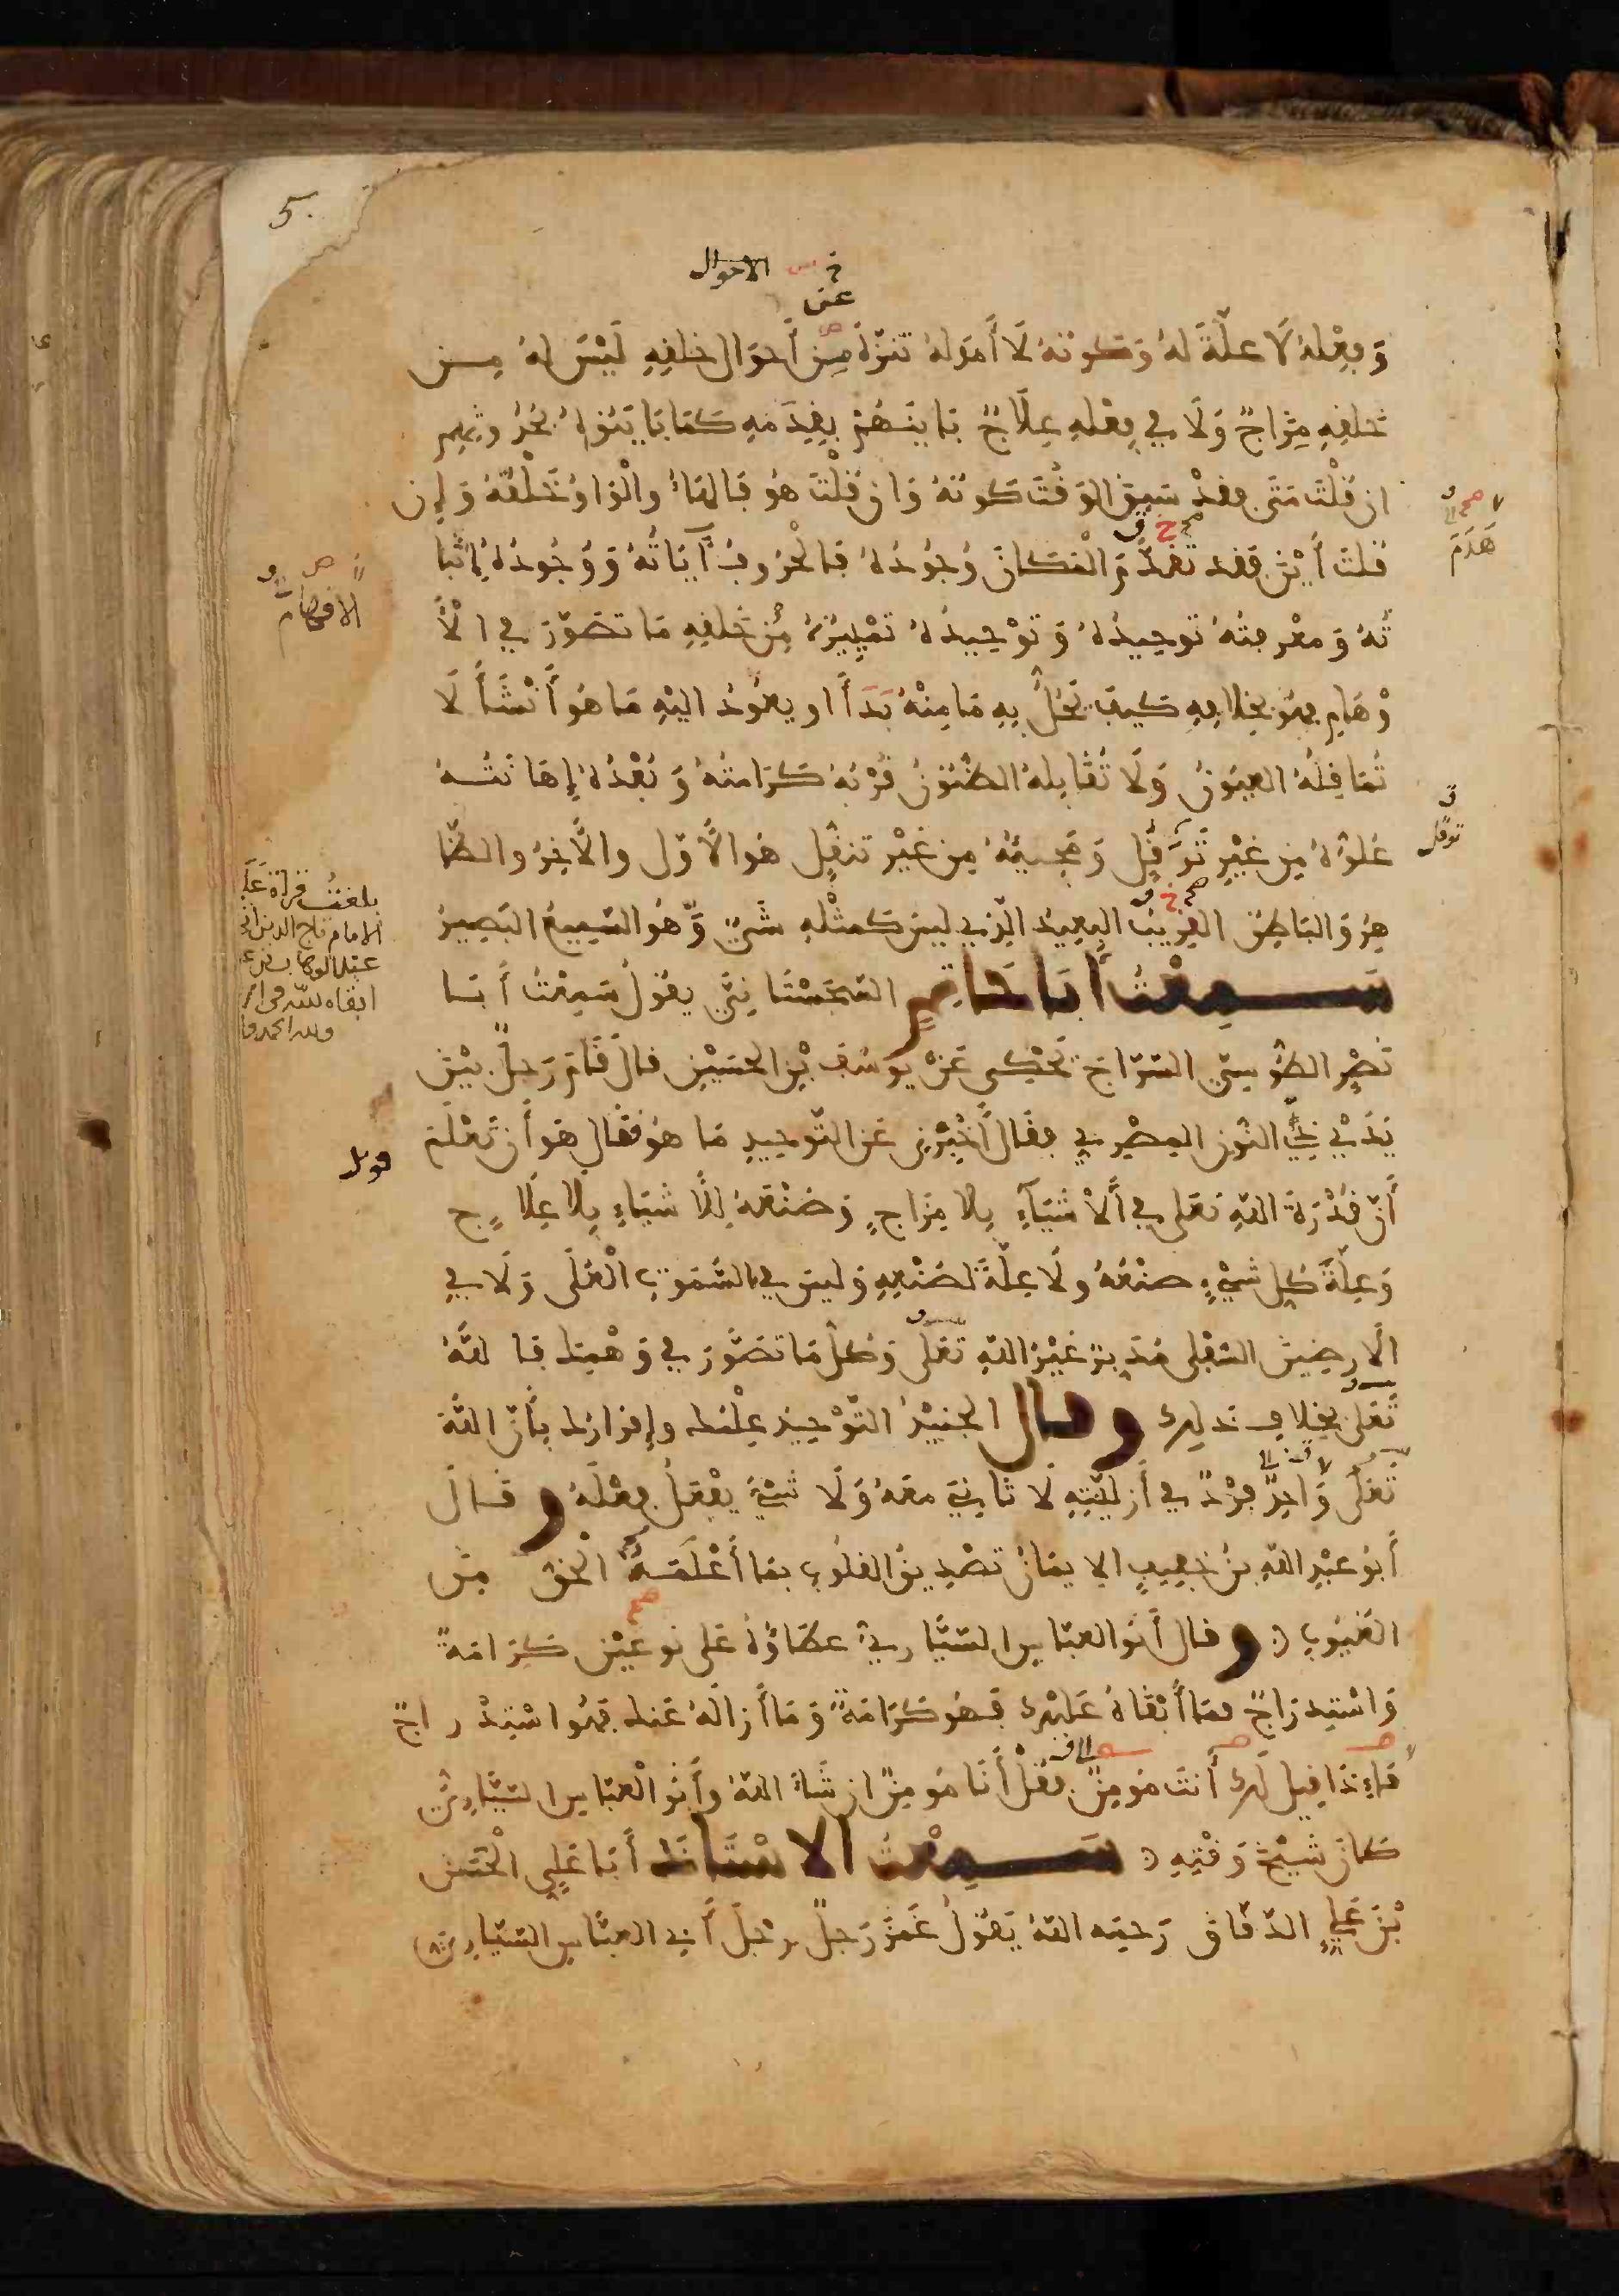 5.
عن
الاحوال
وَفِعْلهُ لَا عِلَّةَ لَهُ وَكَونهُ لَا أَمَدَ لهُ تنزّهَ مِن أَحوَال خلقِهِ لَيْسَ لهُ مِن
خلقِهِ مِزَاجٌ وَلَا في فِعْلهِ عِلَاجٌ بَايَنَهُمْ بِقِدَمهِ كَمَا بَايَنُوهُ بحُدُوثِهِم
ان قُلْتَ مَتَى فقدْ سَبقَ الوَقتَ كَونُهُ وَان قُلْتَ هُو فَالهَاءُ والْوَاوُ خَلْقُهُ وَإِن
قُلتَ أَيْنَ فَقد تقدَّمَ الْمَكَانَ وُجُودُهُ فَالحُرُوفُ آيَاتُهُ وَوُجُودُهُ إِثْبَا
تُهُ وَمعْرِفتُهُ توحِيدُهُ وَتَوْحِيدُهُ تمْيِيزُهُ مِن خَلقِهِ مَا تصَوّرَ في الْأَ
وْهَامِ فهُوَ بخِلافِهِ كَيفَ يَحُلُّ بِهِ مَا مِنْهُ بَدَأَ او يعُودُ اليْهِ مَا هُوَ أَنْشَأَ لَا
تُمَاقِلُهُ العيُونُ وَلَا تُقَابِلهُ الظنُونُ قُرْبُهُ كَرَامتُهُ وَبُعْدُهُ إِهَانَتُهُ
عُلوُّهُ مِن غَيْرِ تَوَقُّلٍ وَمَجِيئُهُ مِن غَيْرِ تنقُّلٍ هُوَ الأَوّل والأَخِرُ والظّا
هِرُ وَالبَاطِنُ القرِيبُ البعِيدُ الّذِي ليسَ كَمثْلهِ شَيْءٌ وَّهُوَ السّمِيعُ البَصِيرُ
سَمِعْتُ أَبَا حَاتِمٍ السّجِسْتَانِيَّ يقُولُ سَمِعْتُ أَبَا
نَصْرٍ الطُّوسِيّ السّرّاجَ يَحْكِى عَنْ يُوسُفَ بْنِ الحُسَيْنِ قالَ قَامَ رَجلٌ بيْنَ
يَدَيْ ذِي النُّونِ المِصْرِيّ فقَالَ أَخْبِرْنِي عَنِ التّوحِيدِ مَا هُوَ فقال هُوَ أَن تَعْلَمَ
أَنّ قُدْرَةَ اللّهِ تعَلى في الْأَشيَآءِ بِلا مِزَاجٍ وَصُنْعَهُ لِلْأَشيَاءِ بِلا عِلَاجٍ
وَعِلَّةُ كُلّ شَيْءٍ صنْعُهُ ولَا عِلَّةَ لصُنْعِهِ وَليسَ في السَّمَوَتِ الْعُلَى وَلَا في
الأَرضِينَ السّفْلى مُدَبِّرٌ غَيْرُ اللّهِ تعَلَى وَكُلُّ مَا تصَوَّرَ في وَهْمِكَ فَاللّهُ
تَعَلى بخِلافِ ذَلِكَ وقال الجُنيْدُ التّوْحِيدُ عِلْمُكَ وإِقرَارُكَ بأَنّ اللّهَ
تعَلَى وَاحِدٌ فرْدٌ في أَزَليّتِهِ لَا ثانِيَ معَهُ وَلَا شَيْءَ يفْعَلُ فِعْلَهُ وقَالَ
أَبُو عَبْدِ اللّهِ بْنُ خَفِيفٍ الاِيمَانُ تصْدِيقُ القلُوبِ بمَا أَعْلَمَهُ الْحَقّ مِنَ
الغُيُوبِ وقال أَبُو العبّاسِ السّيّارِيُّ عطَاؤُهُ عَلى نوعَيْنِ كَرَامَةٌ
وَاسْتِدرَاجٌ فمَا أَبْقَاهُ عَليْكَ فهُوَ كَرَامَةٌ وَمَا أَزَالَهُ عَنكَ فهُوَ اسْتِدْرَاجٌ
فَإِذَا قِيلَ لَكَ أَنتَ مُؤمِنٌ فقُلْ أَنَا مُؤمِنٌ ان شَاءَ اللّهُ وأَبُو الْعبّاسِ السّيّارِيّ
كانَ شَيْخَ وَقْتِهِ سَمِعْتُ الاُسْتَاذَ أَبَا عَلِي الْحَسَنَ
بْنَ عَلِيٍّ الدّقّاقَ رَحِمَه اللّهُ يَقُولُ غَمَزَ رَجلٌ رِجْلَ أَبِي العبّاسِ السّيّارِيّ
هَدَمَ
توقل
بلغت قراة على
الامام تاج الدين
عبد الوهاب
ابقاه الله
ولله الحمد